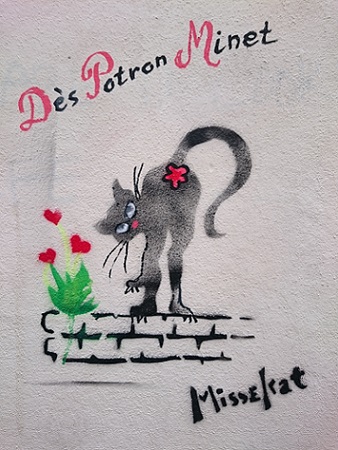 Dès Potron Minet
MissKat